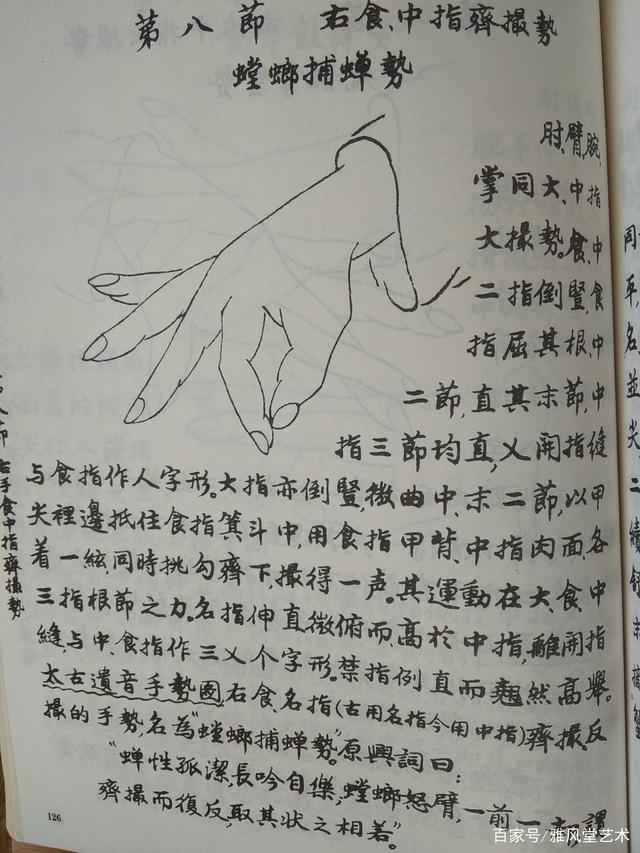 第八節 右食、中指齊撮勢
螳螂捕蟬勢
肘、臂、腕、
掌同大、中指
大撮勢。食、中
二指倒豎，食
指屈其根、中
二節，直其末節，中
指三節均直，乂開指縫
与食指作人字形。大指亦倒豎，微曲中、末二節，以甲
尖裡邊抵住食指箕斗中，用食指甲背、中指肉面、各
着一絃，同時挑勾齊下，撮得一声。其運動在大、食、中
三指根節之力。名指伸直微俯而高於中指，離開指
縫，与中、食指作三乂个字形。禁指例直而翹然高舉。
太古遺音手勢圖右食、名指(古用名指今用中指)齊撮、反
撮的手勢，名為“螳螂捕蟬勢”。原興詞曰：
“蟬性孤潔，長吟自樂，螳螂怒臂，一前一却，謂
齊撮而復反，取其状之相若”。
126
右手食中指齊撮勢
同
平，
名
並
尖
二
百家号/雅风堂艺术